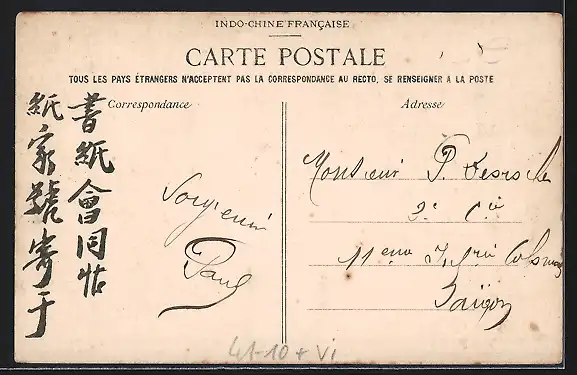 INDO-CHINE FRANÇAISE
CARTE POSTALE
TOUS LES PAYS ÉTRANGERS N'ACCEPTENT PAS LA CORRESPONDANCE AU RECTO, SE RENSEIGNER A LA POSTE
Correspondance
書紙會同帖
紙家號寄于
Paul
Adresse
Monsieur P.
3e Cie
11em
Saïgon
41-10 + VI